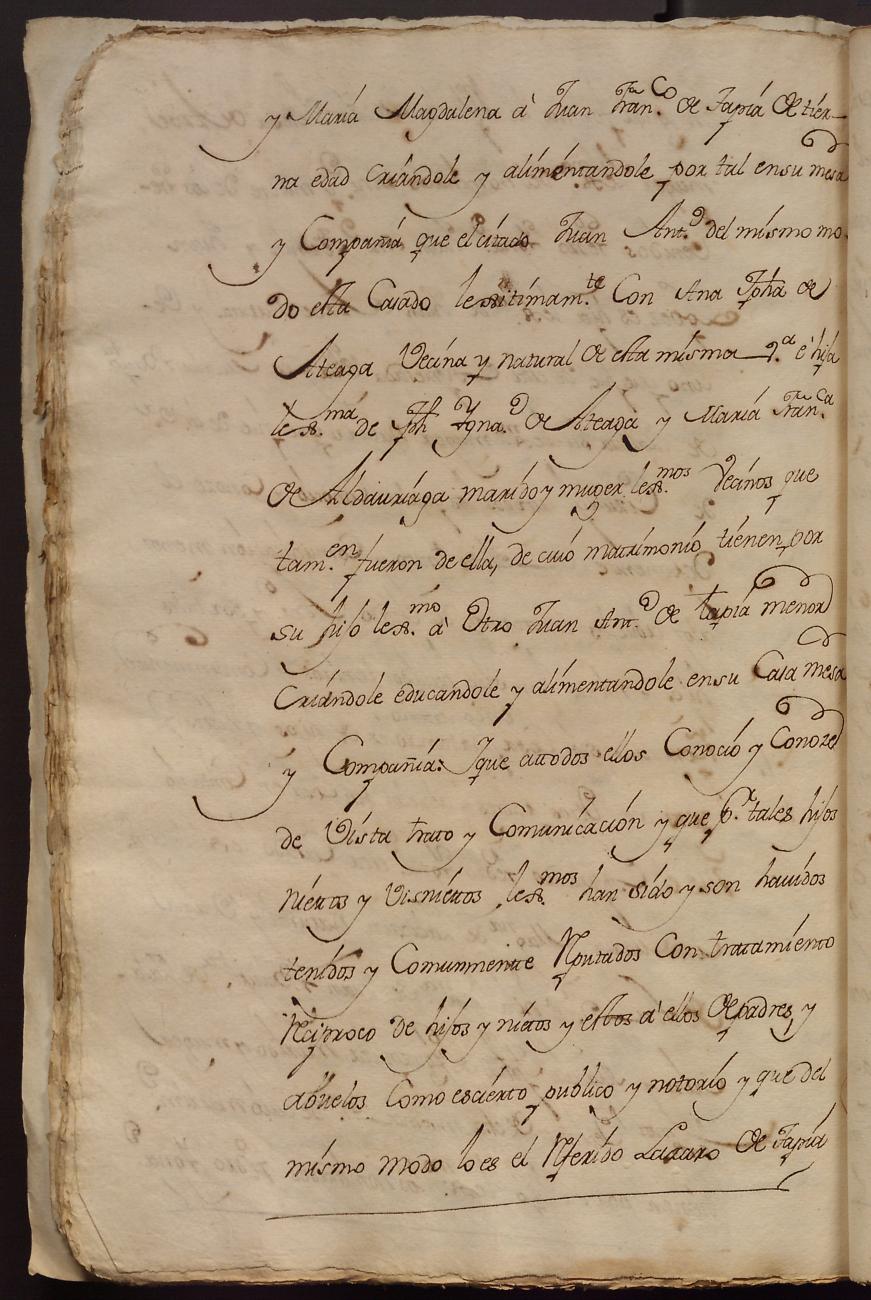 y María Magdalena â Juan Fran.co de Tapía de tíer-
na edad criándole y alímentandole por tal ensu mesa
y Compañía que el cítado Juan Ant.o del mísmo mo
do esta Casado lexitímam.te Con Ana Jpha de
Ateaga Vecína y natural de esta mísma v.a é híja
lex.ma de Jph Ygna.o de Ateaga y María Fran.ca
de Aldauríaga marído y muger lex.mos Vecínos que
tam.en fueron de ella, de cuío matrímonío tíenen por
su híjo lex.mo â Otro Juan Ant.o de tapía menor
Criándole éducandole y alímentandole ensu Casa mesa
y Compañía: Yque atodos ellos Conocío y Conoze
de Vísta trato y Comunícacíón y que p.r tales híjos
níettos y Visníettos lex.mos han sído y son havídos
tenídos y Comunmente Rputados Con tratamíento
Rcíproco de híjos y níetos y estos â ellos de padres, y
abuelos Como escíerto publíco y notorío y que del
mísmo modo lo es el Rferído Lazaro de Tapía